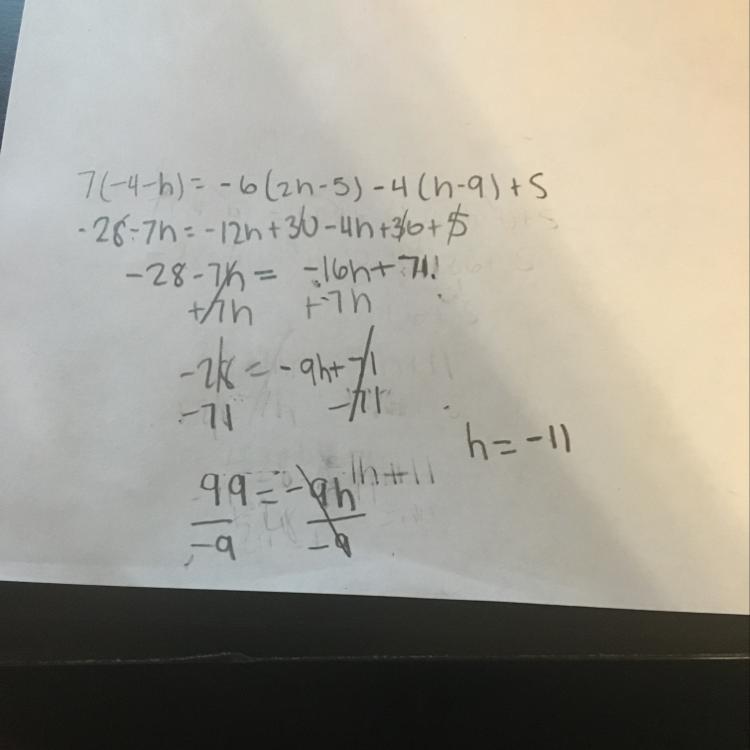 7(-4-h) = -6(2h-5)-4(h-9)+5
-28-7h = -12h+30-4h+36+5
-28-7h = -16h+71
+7h +7h
-28 = -9h+71
-71 -71
h = -11
99 = -9h
-9 -9